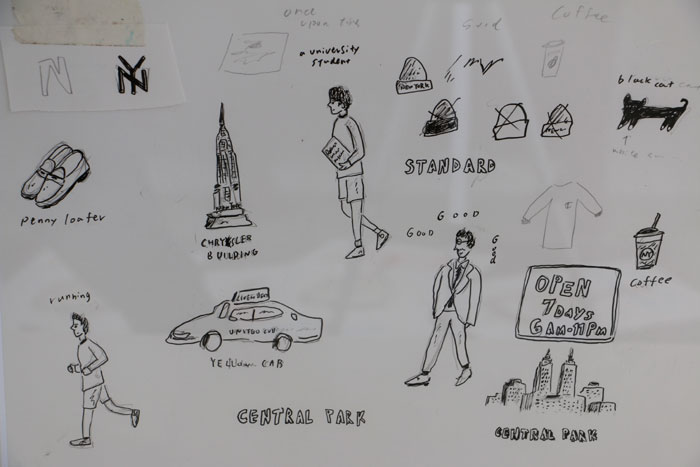 once
upon time
Good
Coffee
a university
student
NY
NEW YORK
black cat
STANDARD
penny loafer
CHRYSLER
BUILDING
GOOD
GOOD
Good
coffee
OPEN
7 DAYS
6AM-11PM
running
CAB
CENTRAL PARK
CENTRAL PARK